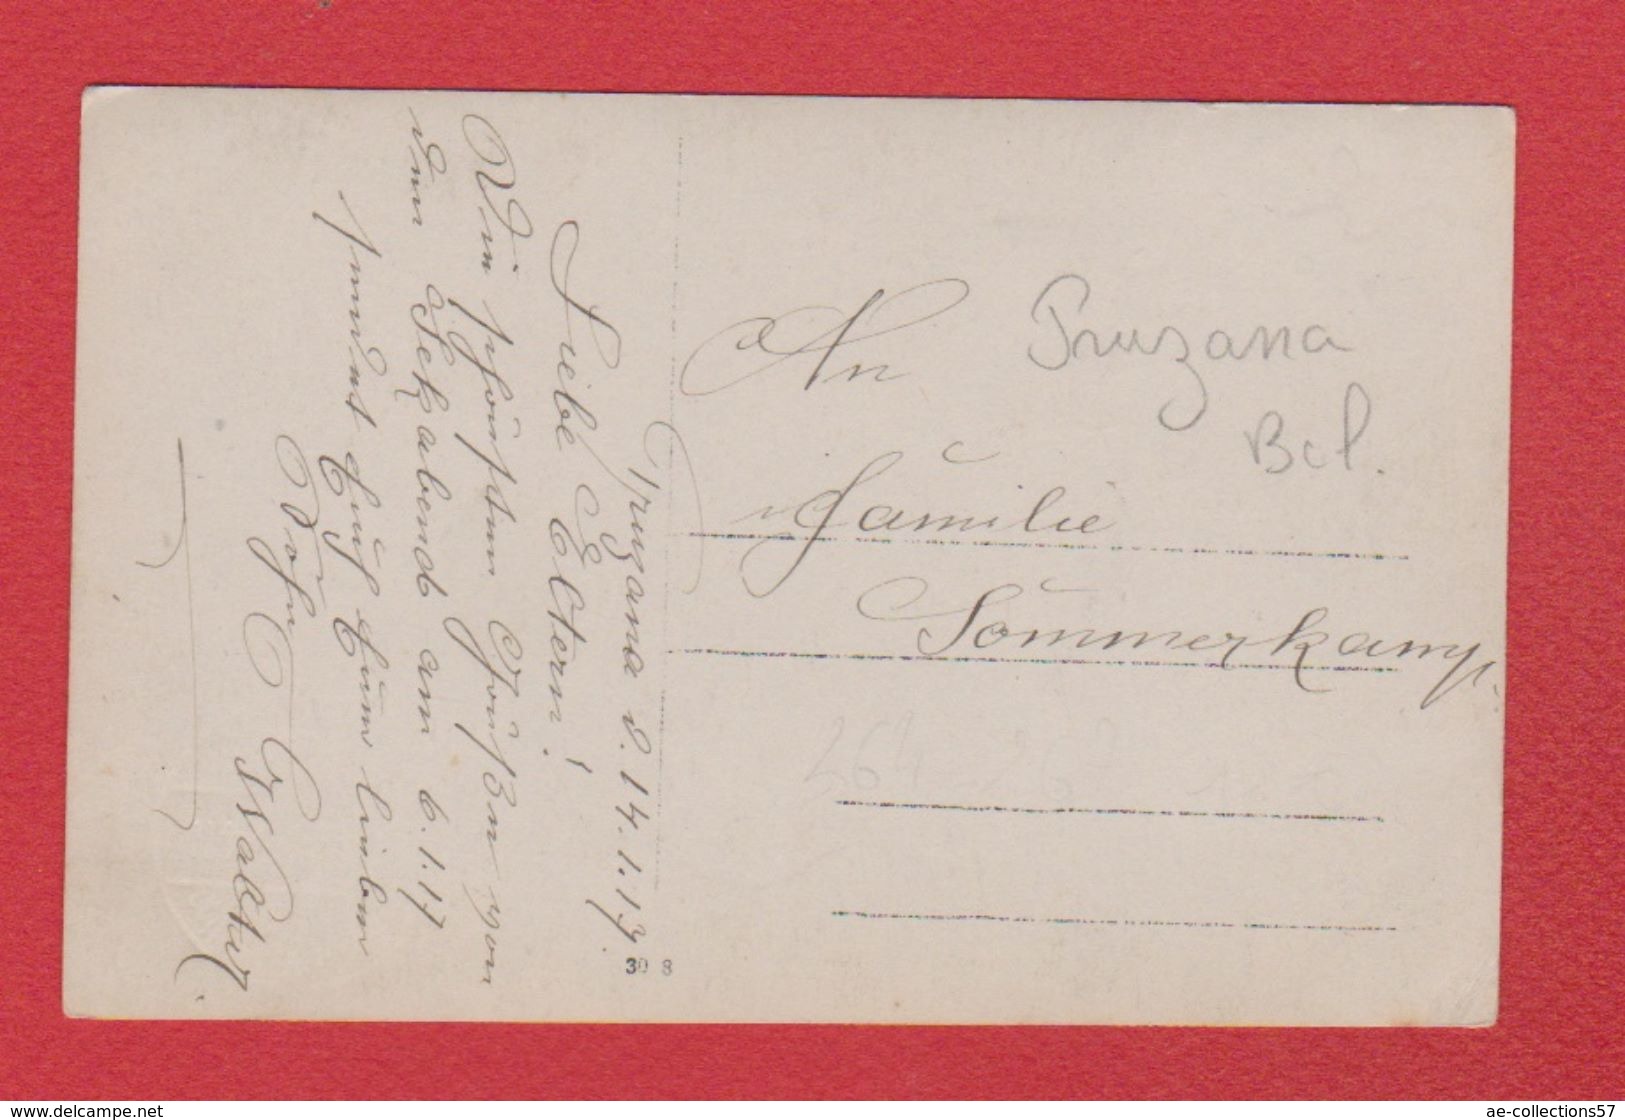 Pruzana d. 14.1.17.
Liebe Eltern!
Die schönsten Grüßen von
dem Sekabend am 6.1.17
sendet Euch Euer lieber
Sohn Walter.
An
Familie
Sommerkamp.
Pruzana
Bel.
30 8
www.delcampe.net
ae-collections57